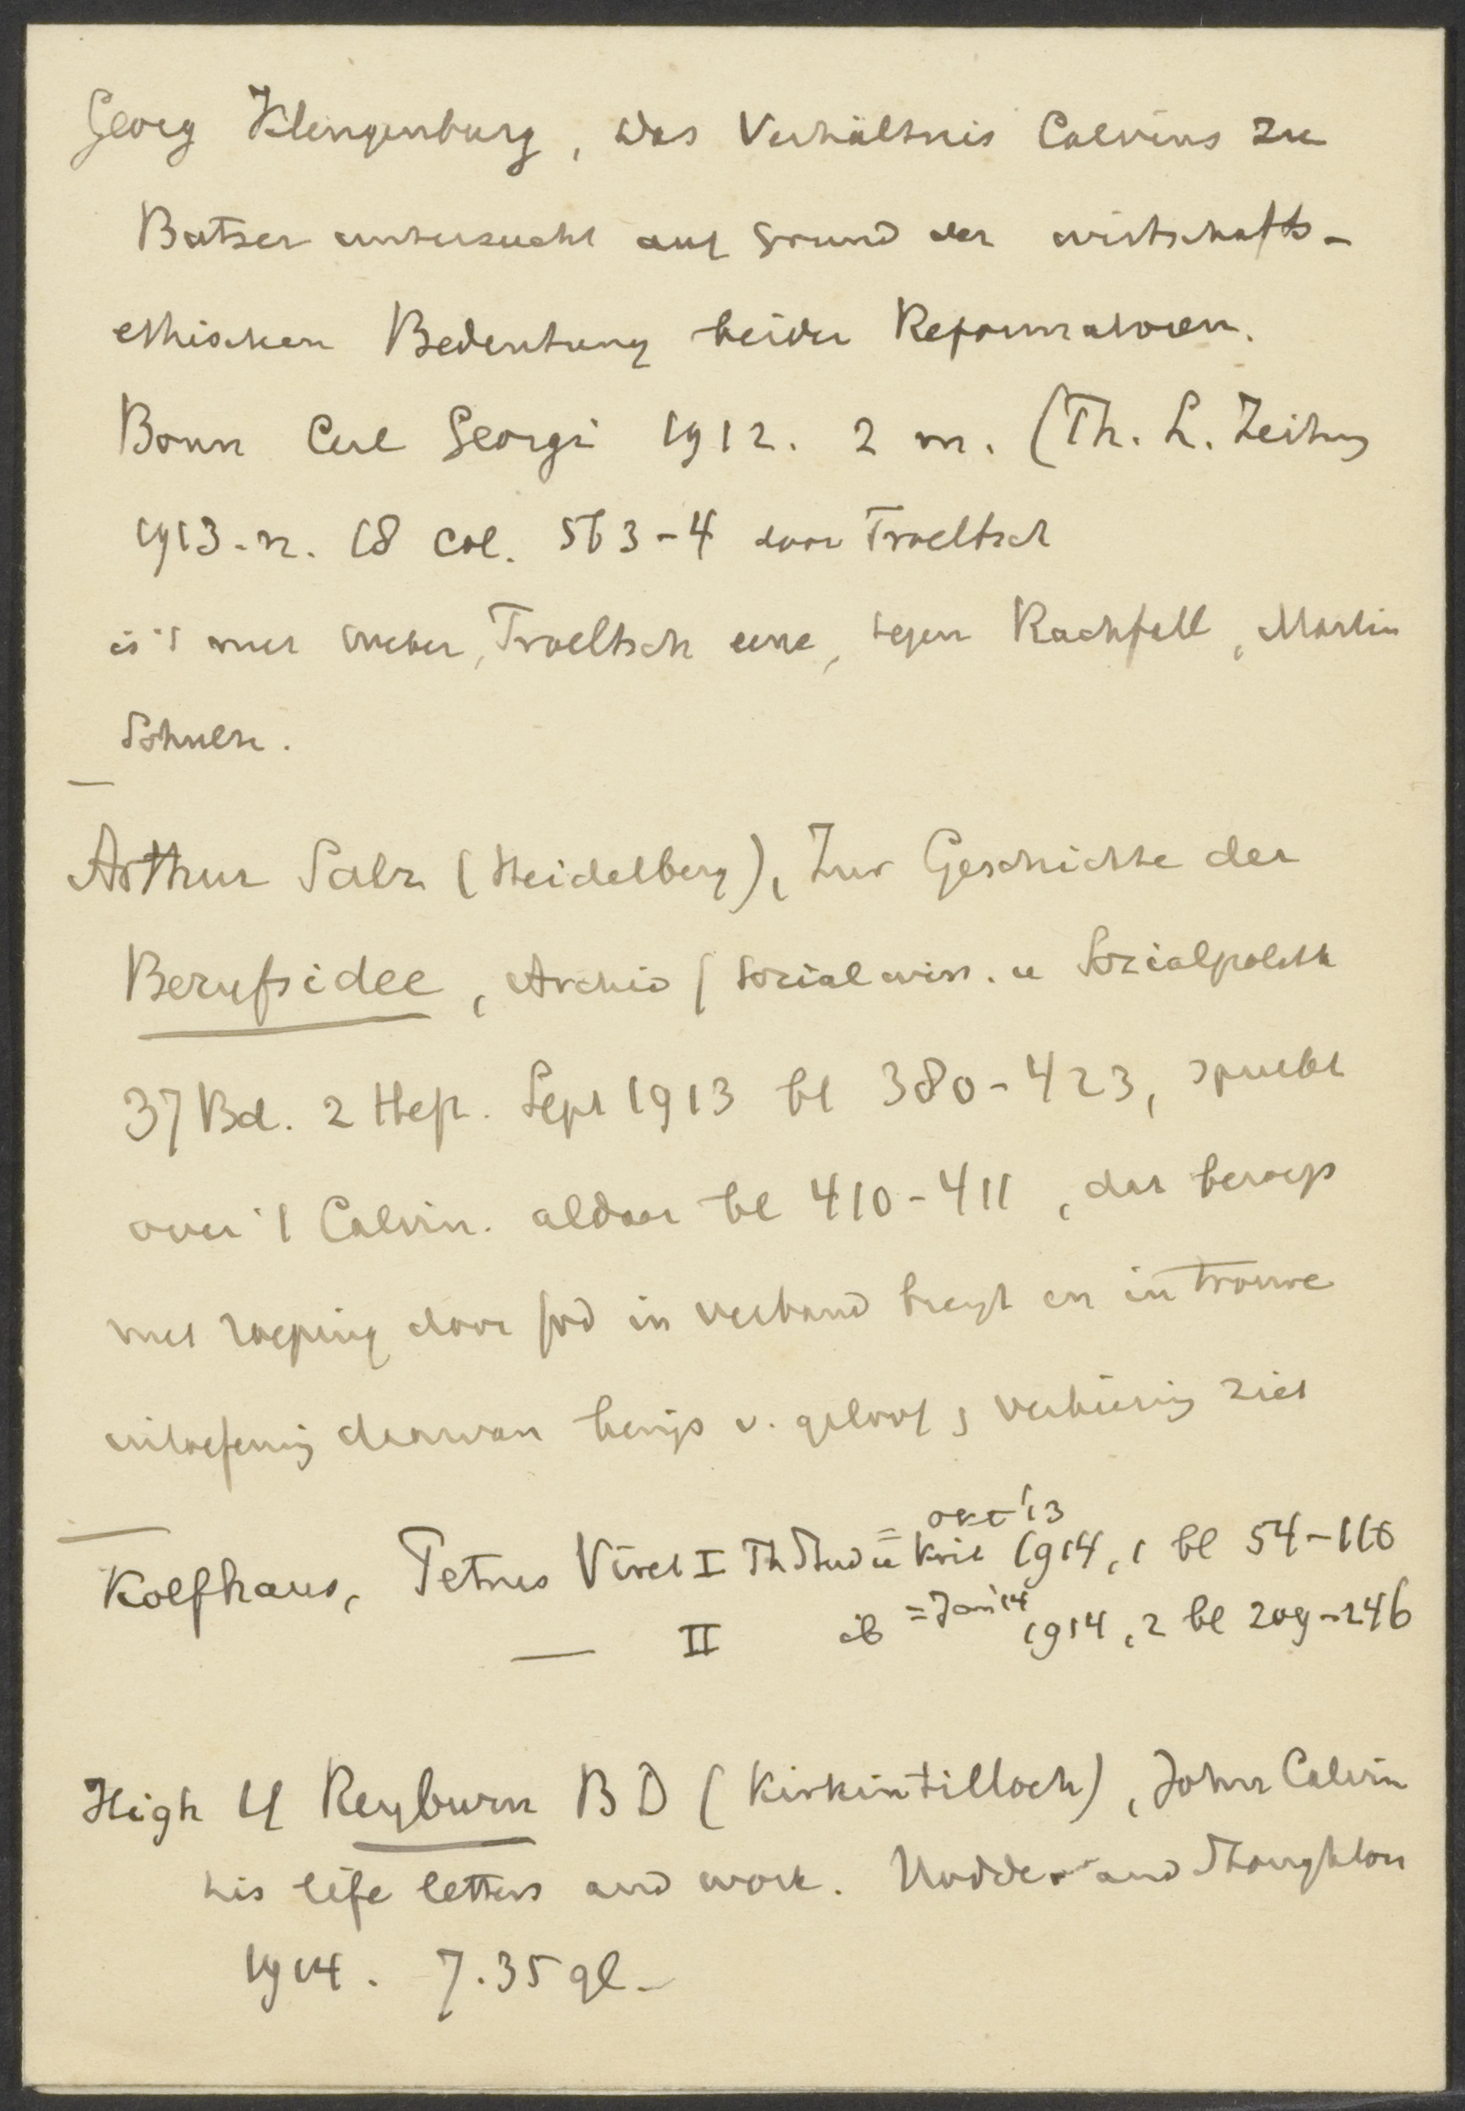 Georg Klingenburg, das Verhältnis Calvins zu
Butzer untersucht auf Grund der wirtschafts-
ethischen Bedeutung beider Reformatoren.
Bonn Carl Georgi 1912. 2 m. (Th. L. Zeitung
1913. n. 18 col. 563-4 door Troeltsch
is 't met Weber, Troeltsch eens, tegen Rachfell, Martin
Schulze.
Arthur Salz (Heidelberg), Zur Geschichte der
Berufsidee, Archiv f Sozialwiss. u Sozialpolitik
37 Bd. 2 Heft. Sept 1913 bl 380-423, spreekt
over 't Calvin. aldaar bl 410-411, dat beroep
met roeping door God in verband brengt en in trouwe
uitoefening daarvan bewijs v. geloof, verkiezing ziet
Kolfhaus, Petrus Viret I Th Stud u Krit = okt '13 1914, 1 bl 54-110
— II ib = Jan '14 1914, 2 bl 209-246
High Y Reyburn BD (Kirkintilloch), John Calvin
his life letters and work. Hodder and Stoughton
1914. 7.35 gl.